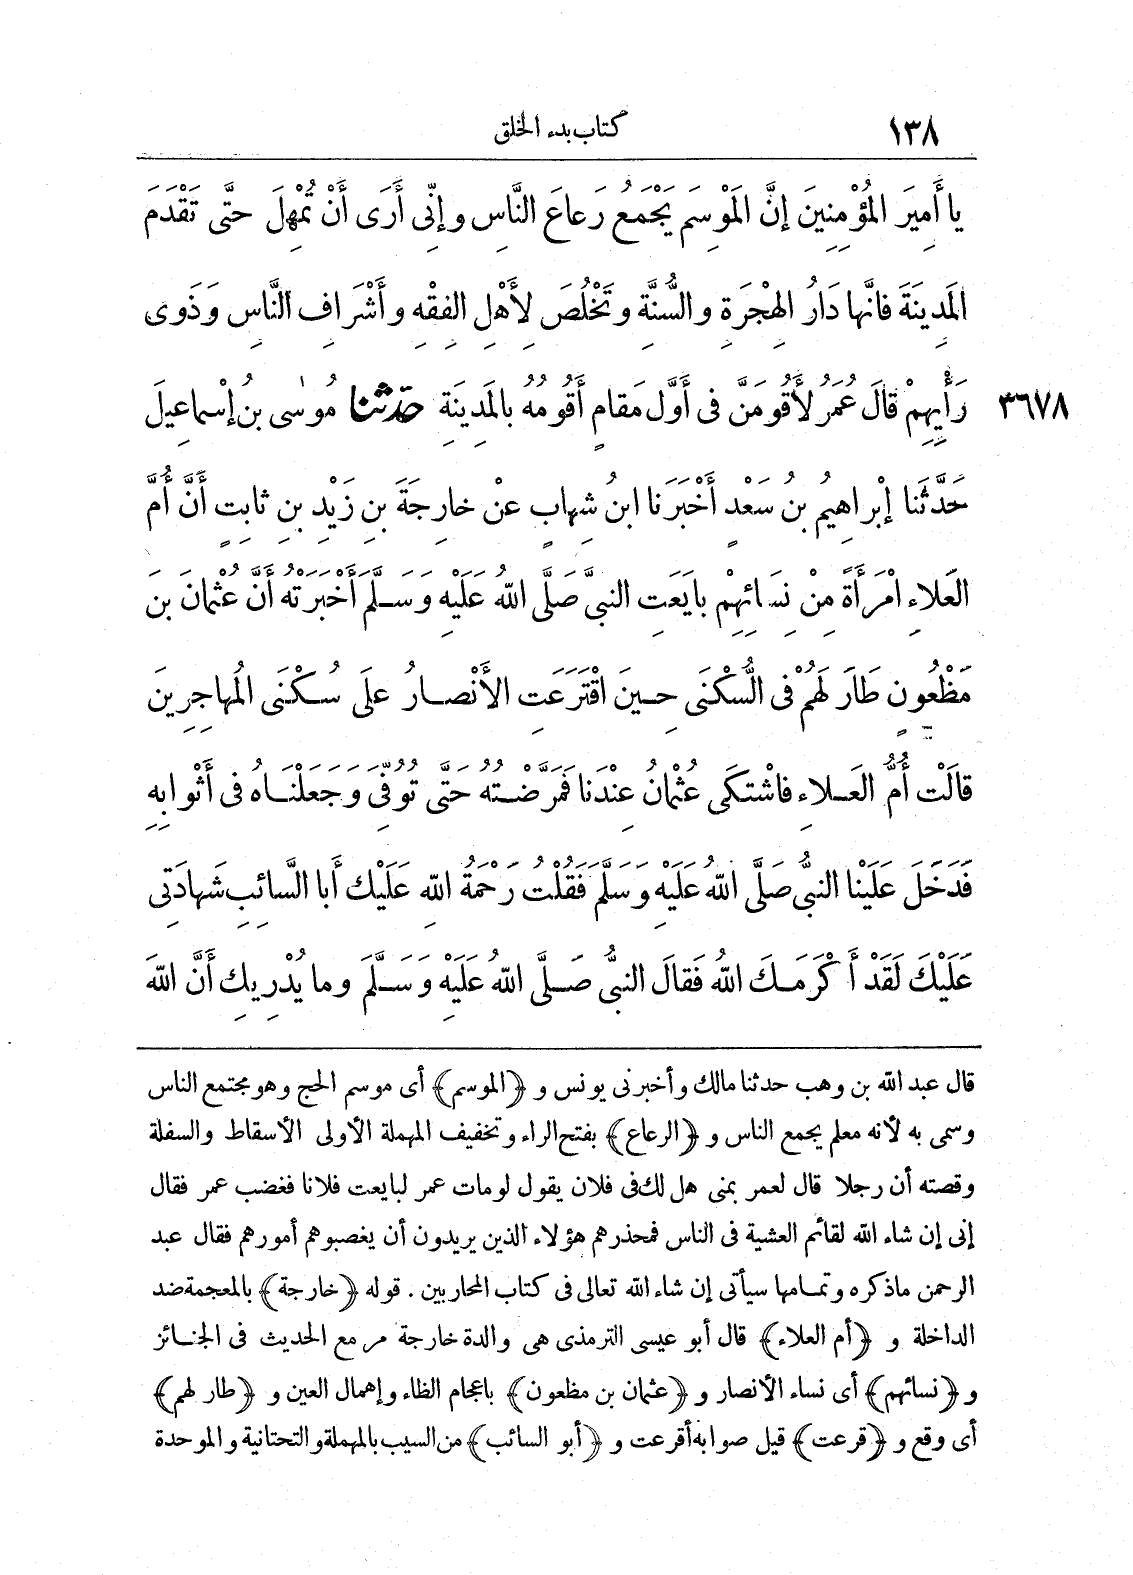 ١٣٨ كتاب بدء الخلق
يا أَمِيرَ المُؤْمِنِينَ إنَّ المَوْسِمَ يَجْمَعُ رَعاعَ النَّاسِ وإنِّى أَرَى أَنْ تُمْهِلَ حتَّى تَقْدَمَ
المَدِينَةَ فانَّها دَارُ الهِجْرَةِ والسُّنَّةِ وتَخْلُصَ لِأَهْلِ الفِقْهِ وأَشْرَافِ النَّاسِ وَذَوِى
رَأْيِهِمْ قالَ عُمَرُ لأَقُومَنَّ فى أَوَّلِ مَقامٍ أَقُومُهُ بالمَدِينَةِ حَدَّثنا مُوسَى بن إسْماعِيلَ ٣٦٧٨
حَدَّثَنا إبْراهِيمُ بنُ سَعْدٍ أَخْبَرَنا ابنُ شِهابٍ عنْ خارِجَةَ بنِ زَيْدِ بنِ ثابتٍ أَنَّ أُمَّ
العَلاءِ امْرَأَةً مِنْ نِسَائِهِمْ بايَعَتِ النبىَّ صَلَّى اللهُ عَلَيْهِ وَسَلَّمَ أَخْبَرَتْهُ أَنَّ عُثْمانَ بنَ
مَظْعُونٍ طَارَ لَهُمْ فى السُّكْنَى حِينَ اقْتَرَعَتِ الأَنْصارُ علَى سُكْنَى المُهاجِرِينَ
قالَتْ أُمُّ العَلاءِ فاشْتَكَى عُثْمانُ عِنْدَنا فَمَرَّضْتُهُ حَتَّى تُوُفِّىَ وَجَعَلْنَاهُ فى أَثْوابِهِ
فَدَخَلَ عَلَيْنا النبىُّ صَلَّى اللهُ عَلَيْهِ وَسَلَّمَ فَقُلْتُ رَحْمَةُ اللهِ عَلَيْكَ أَبا السَّائِبِ شَهادَتِى
عَلَيْكَ لَقَدْ أَكْرَمَكَ اللهُ فَقالَ النبىُّ صَلَّى اللهُ عَلَيْهِ وَسَلَّمَ وما يُدْرِيكِ أَنَّ اللهَ
قال عبد الله بن وهب حدثنا مالك وأخبرنى يونس و ﴿الموسم﴾ أى موسم الحج وهو مجتمع الناس
وسمى به لأنه معلم يجمع الناس و ﴿الرعاع﴾ بفتح الراء وتخفيف المهملة الأولى الأسقاط والسفلة
وقصته أن رجلا قال لعمر بمنى هل لك فى فلان يقول لو مات عمر لبايعت فلانا فغضب عمر فقال
إنى إن شاء الله لقائم العشية فى الناس فمحذرهم هؤلاء الذين يريدون أن يغصبوهم أمورهم فقال عبد
الرحمن ما ذكره وتمامها سيأتى إن شاء الله تعالى فى كتاب المحاربين . قوله ﴿خارجة﴾ بالمعجمة ضد
الداخلة و ﴿أم العلاء﴾ قال أبو عيسى الترمذى هى والدة خارجة مر مع الحديث فى الجنائز
و ﴿نسائهم﴾ أى نساء الأنصار و ﴿عثمان بن مظعون﴾ باعجام الظاء وإهمال العين و ﴿طار لهم﴾
أى وقع و ﴿قرعت﴾ قيل صوابه أقرعت و ﴿أبو السائب﴾ من السيب بالمهملة والتحتانية والموحدة